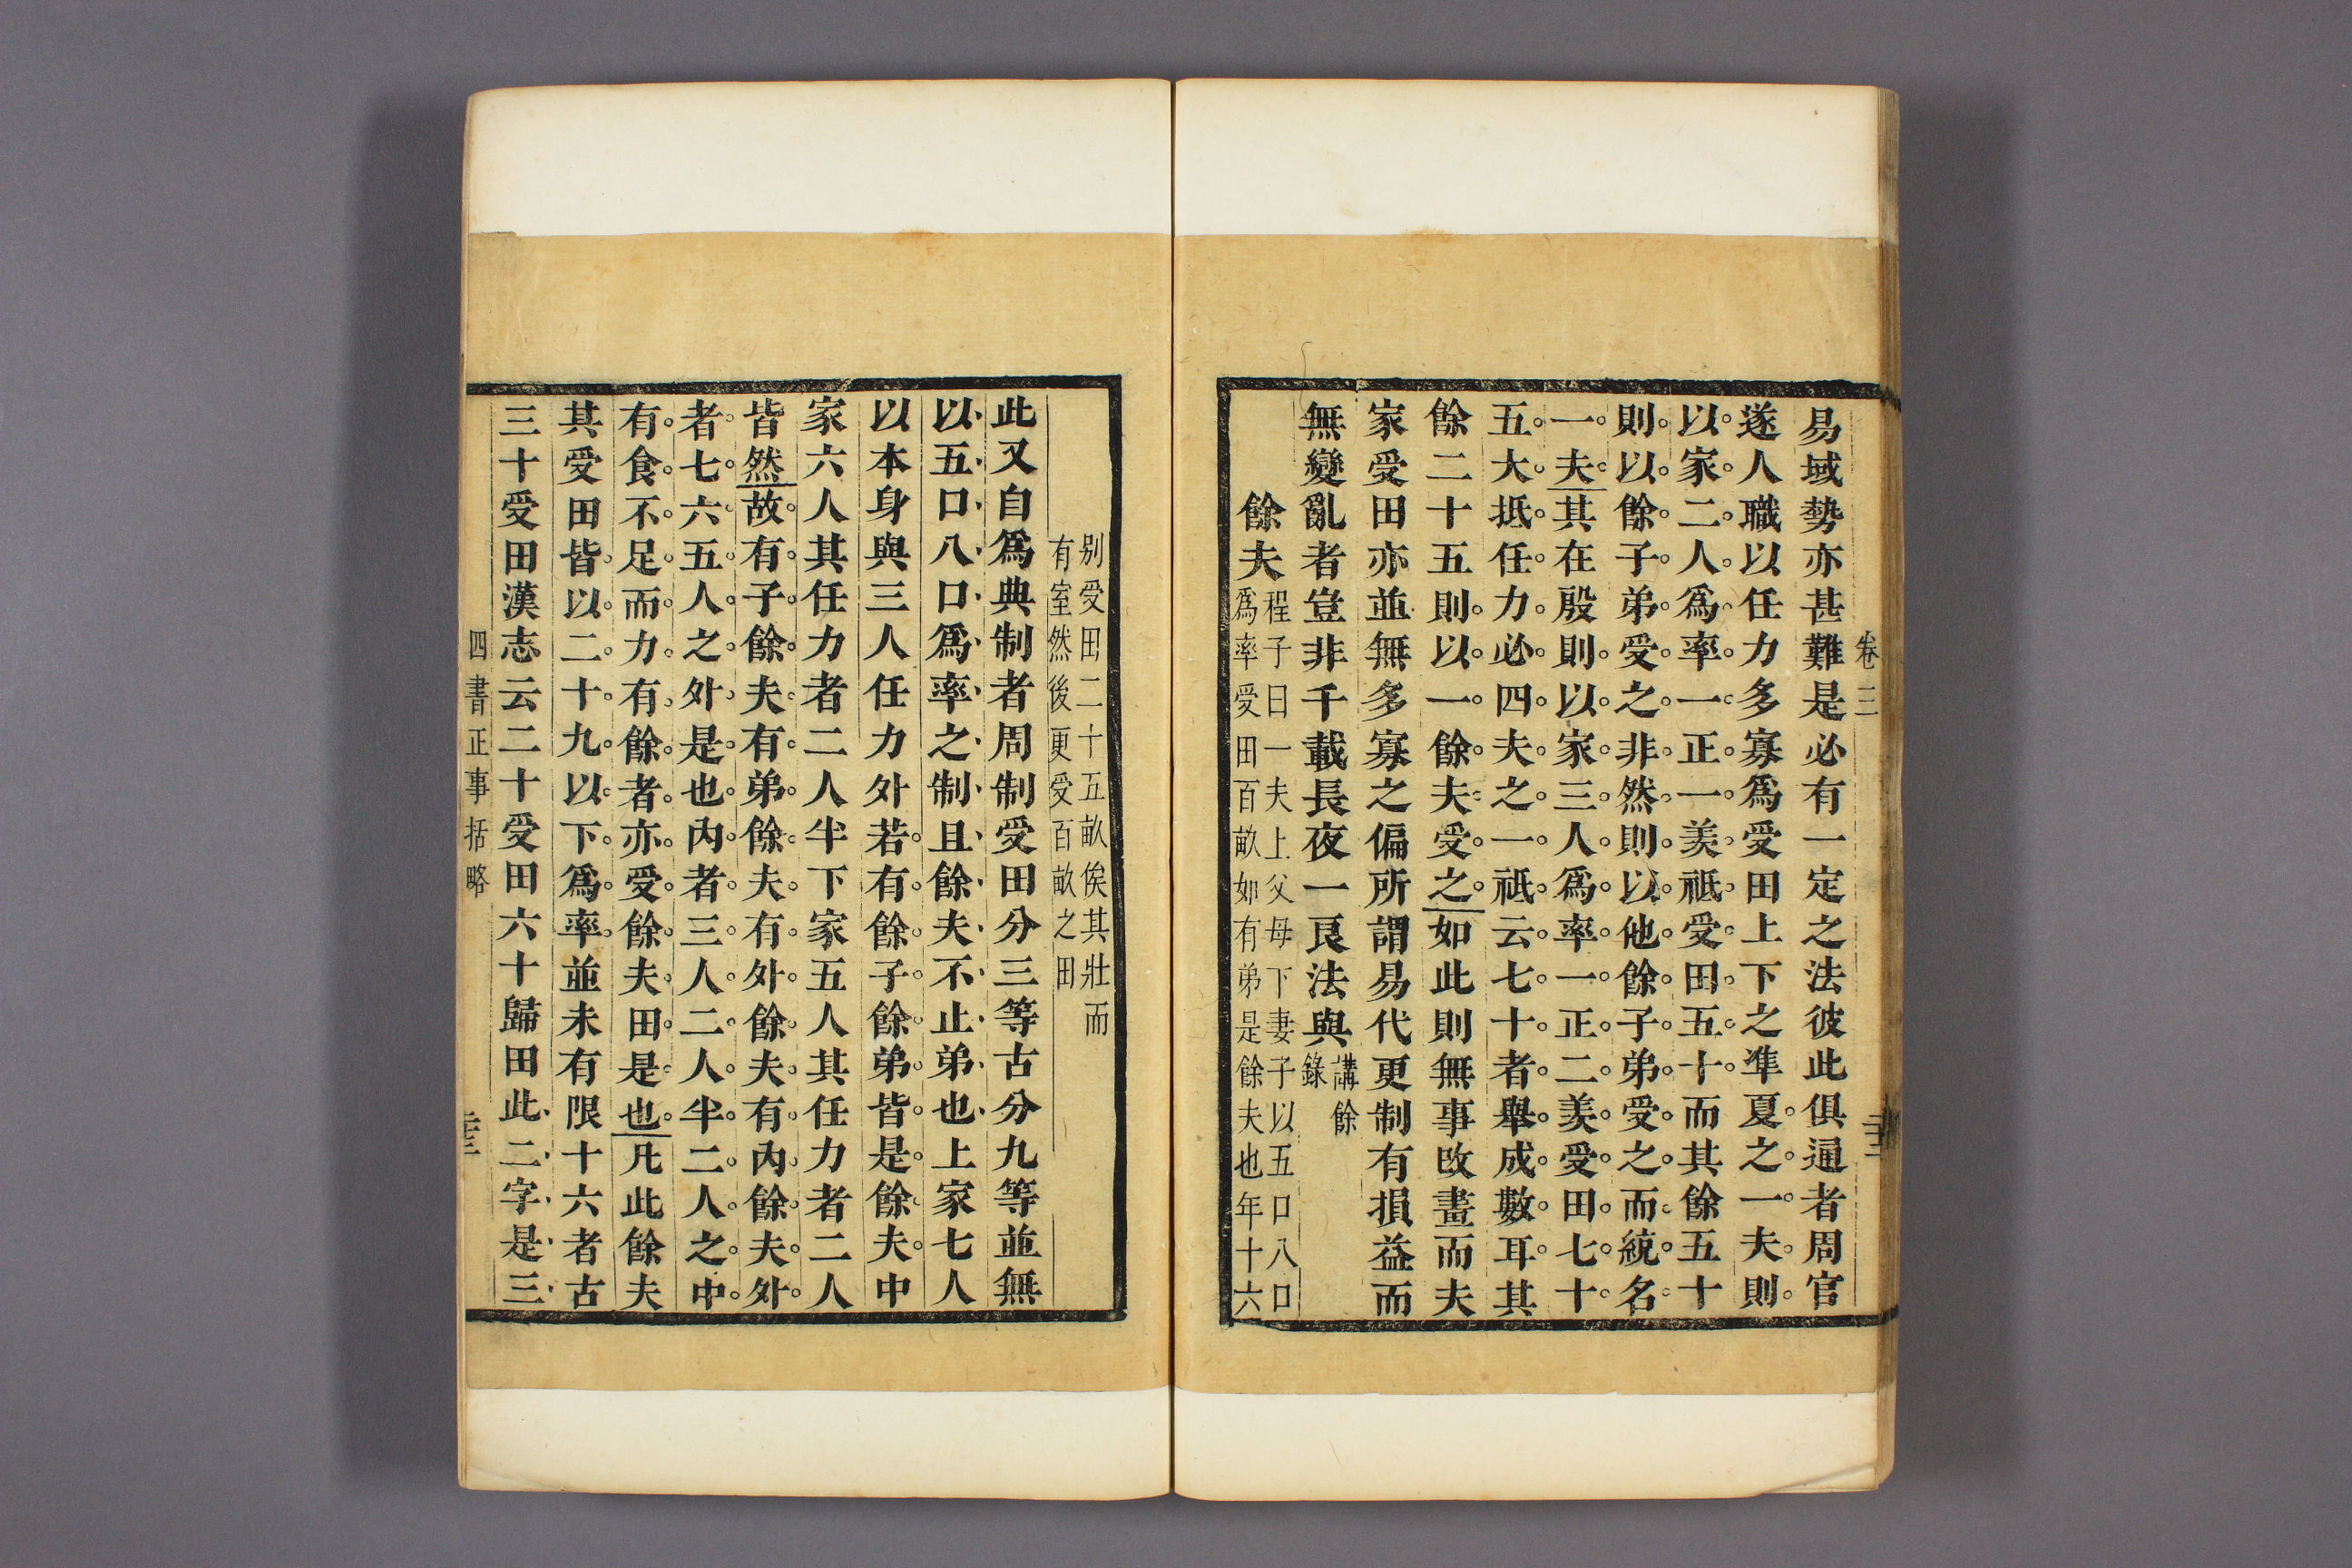 卷三
易域勢亦甚難是必有一定之法彼此俱通者周官
遂人職以任力多寡爲受田上下之準夏之一夫則
以家二人爲率一正一羨祗受田五十而其餘五十
則以餘子弟受之非然則以他餘子弟受之而統名
一夫其在殷則以家三人爲率一正二羨受田七十
五大抵任力必四夫之一祗云七十者舉成數耳其
餘二十五則以一餘夫受之如此則無事改畫而夫
家受田亦並無多寡之偏所謂易代更制有損益而
無變亂者豈非千載長夜一良法與
講餘
錄
餘夫
程子曰一夫上父母下妻子以五口八口
爲率受田百畝如有弟是餘夫也年十六
別受田二十五畝俟其壯而
有室然後更受百畝之田
此又自爲典制者周制受田分三等古分九等並無
以五口八口爲率之制且餘夫不止弟也上家七人
以本身與三人任力外若有餘子餘弟皆是餘夫中
家六人其任力者二人半下家五人其任力者二人
皆然故有子餘夫有弟餘夫有外餘夫有內餘夫外
者七六五人之外是也內者三人二人半二人之中
有食不足而力有餘者亦受餘夫田是也凡此餘夫
其受田皆以二十九以下爲率並未有限十六者古
三十受田漢志云二十受田六十歸田此二字是三
四書正事括略